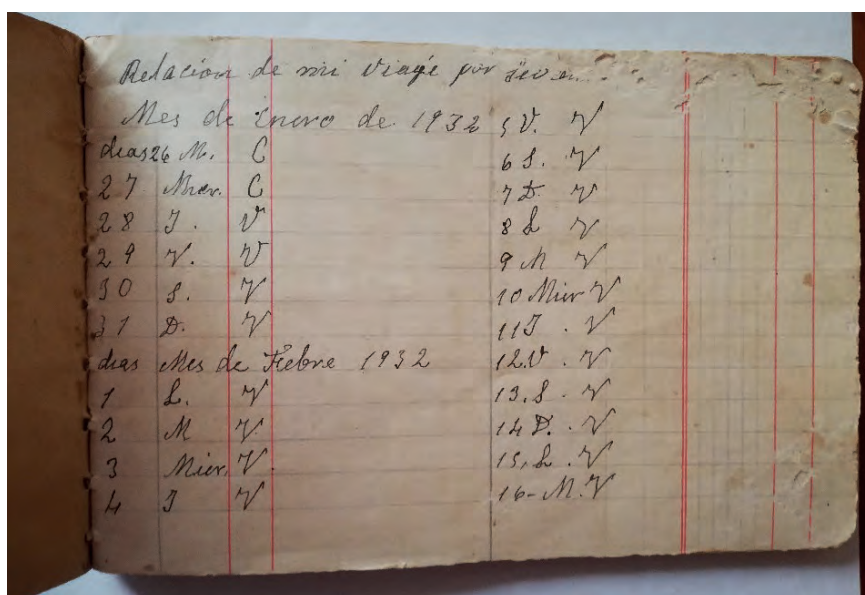 Relacion de mi viage por
Mes de Enero de 1932
dias 26 M. C
27 Mier. C
28 J. V
29 V. V
30 S. V
31 D. V
dias Mes de Febre 1932
1 L. V
2 M V
3 Mier. V.
4 J V
5 V. V
6 S. V
7 D. V
8 L V
9 M V
10 Mier V
11 J . V
12. V . V
13. S . V
14 D. . V
15. L . V
16- M. V